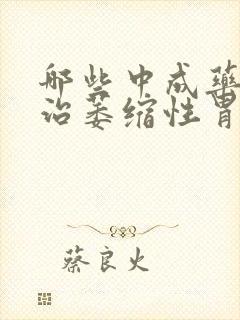 哪些中成药
治萎缩性胃
蔡良火